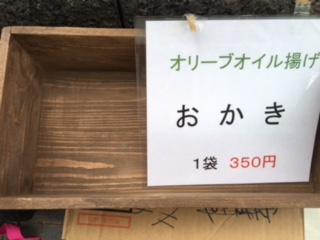 オリーブオイル揚げ
おかき
1袋 350円